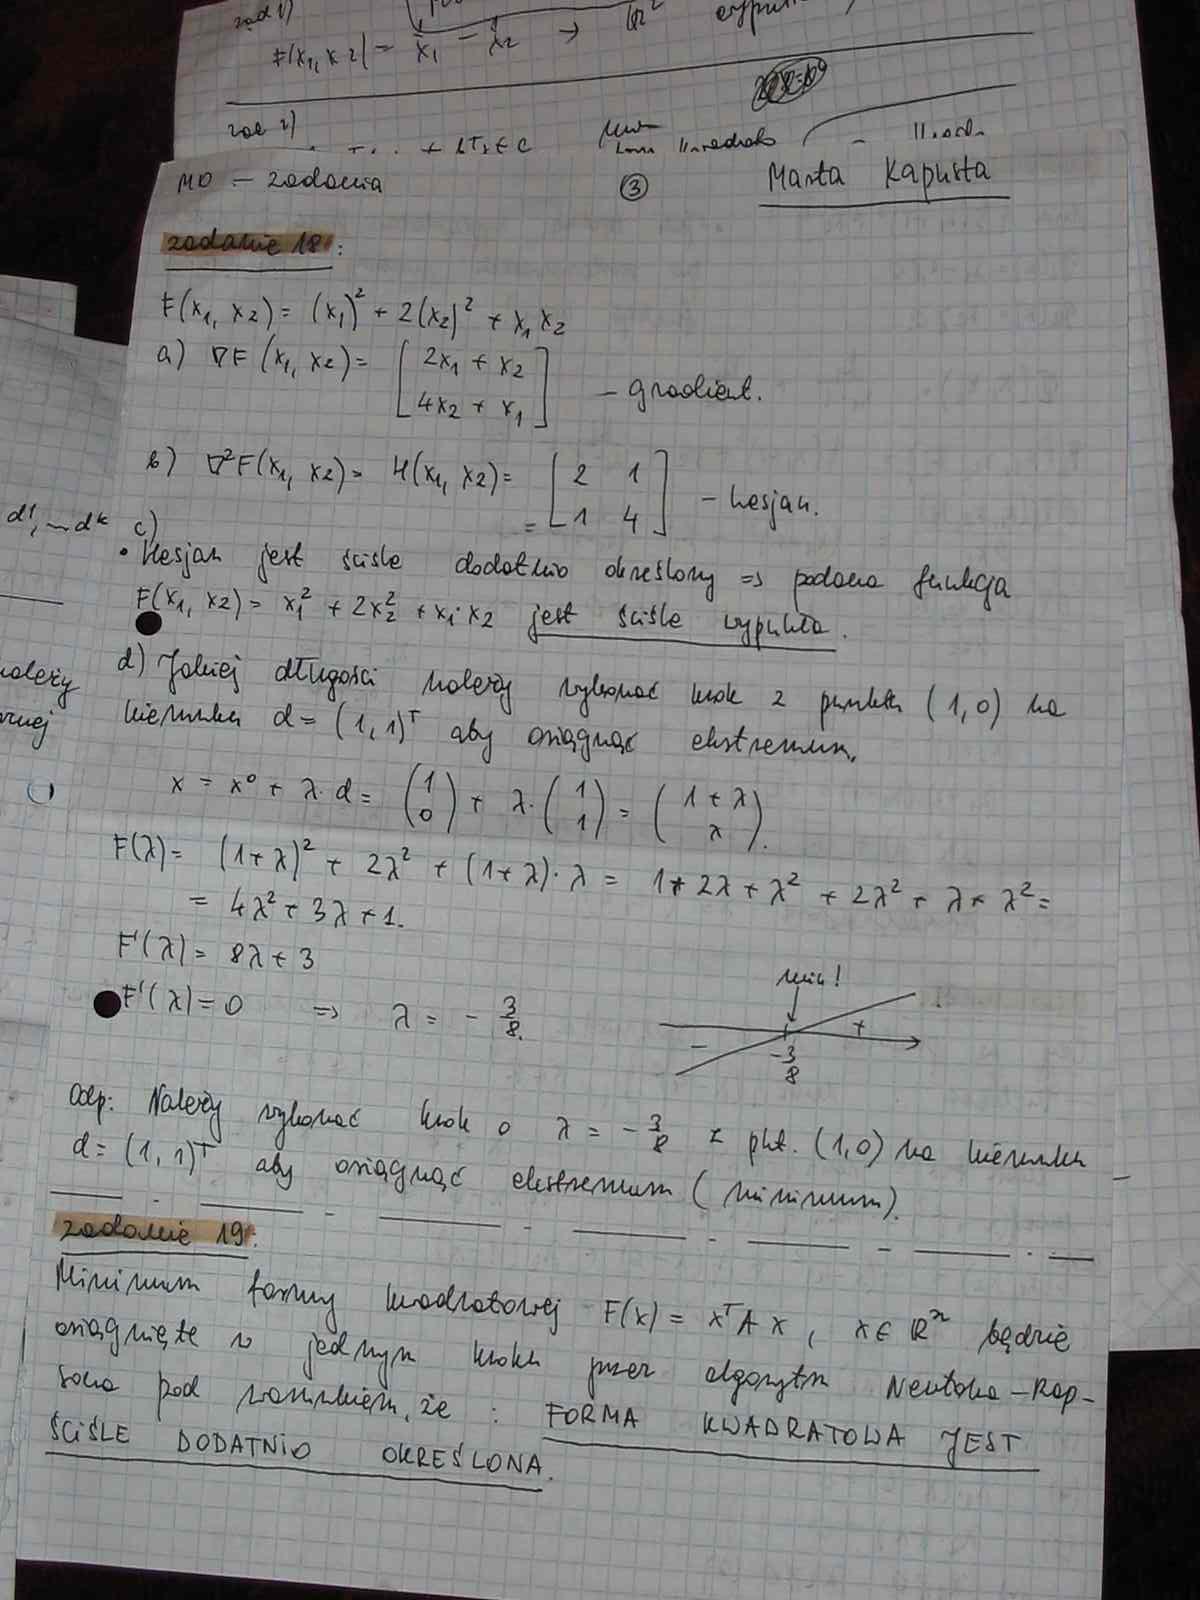 zad 1)
F(x1, x2) = x1 - x2 → R²
zad 2)
MO - zadania ③ Marta Kapusta
zadanie 18:
F(x1, x2) = (x1)² + 2(x2)² + x1 x2
a) ∇F (x1, x2) = [ 2x1 + x2
4x2 + x1 ] - gradient.
b) ∇²F(x1, x2) = H(x1, x2) =
= [ 2 1
1 4 ] - hesjan.
d¹, ... dᵏ
c)
• Hesjan jest ściśle dodatnio określony => podana funkcja
F(x1, x2) = x1² + 2x2² + x1·x2 jest ściśle wypukła.
d) Jakiej długości należy wykonać krok z punktu (1,0) na
kierunku d = (1,1)ᵀ aby osiągnąć ekstremum.
x = x⁰ + λ·d = (1 0) + λ·(1 1) = (1+λ λ).
F(λ) = (1+λ)² + 2λ² + (1+λ)·λ = 1+2λ+λ² + 2λ² + λ + λ² =
= 4λ² + 3λ + 1.
F'(λ) = 8λ + 3
F'(λ) = 0 => λ = - 3/8.
min!
- +
-3/8
Odp: Należy wykonać krok o λ = -3/8 z pkt. (1,0) na kierunku
d = (1,1)ᵀ aby osiągnąć ekstremum (minimum).
zadanie 19:
Minimum formy kwadratowej F(x) = xᵀAx, x∈Rⁿ będzie
osiągnięte w jednym kroku przez algorytm Newtona-Rap-
sona pod warunkiem, że : FORMA KWADRATOWA JEST
ŚCIŚLE DODATNIO OKREŚLONA.